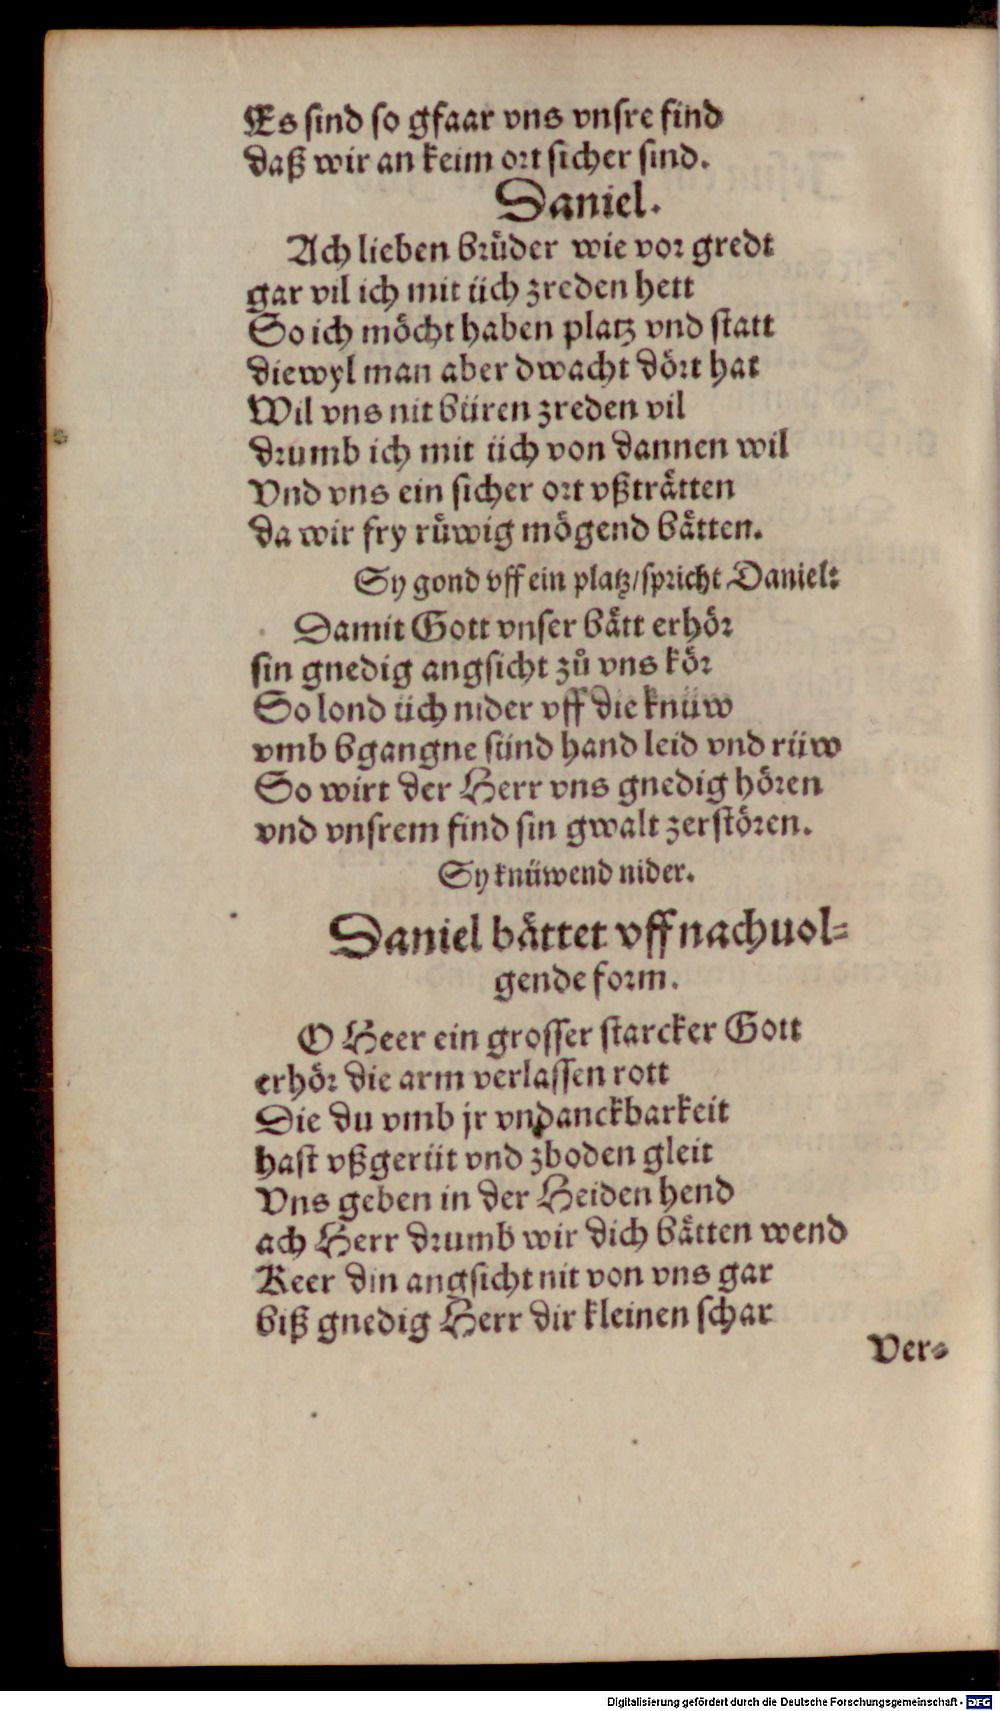 Es sind so gfaar vns vnsre find
daß wir an keim ort sicher sind.
Daniel.
Ach lieben bruͤder wie vor gredt
gar vil ich mit üch zreden hett
So ich moͤcht haben platz vnd statt
diewyl man aber dwacht doͤrt hat
Wil vns nit büren zreden vil
drumb ich mit üch von dannen wil
Vnd vns ein sicher ort vßtraͤtten
da wir fry ruͤwig moͤgend baͤtten.
Sy gond vff ein platz/spricht Daniel:
Damit Gott vnser baͤtt erhoͤr
sin gnedig angsicht zů vns koͤr
So lond üch nider vff die knüw
vmb bgangne sünd hand leid vnd rüw
So wirt der Herr vns gnedig hoͤren
vnd vnsrem find sin gwalt zerstoͤren.
Sy knüwend nider.
Daniel baͤttet vff nachuol⸗
gende form.
O Heer ein grosser starcker Gott
erhoͤr die arm verlassen rott
Die du vmb jr vndanckbarkeit
hast vßgerüt vnd zboden gleit
Vns geben in der Heiden hend
ach Herr drumb wir dich baͤtten wend
Keer din angsicht nit von vns gar
biß gnedig Herr dir kleinen schar
Ver⸗
Digitalisierung gefördert durch die Deutsche Forschungsgemeinschaft - DFG